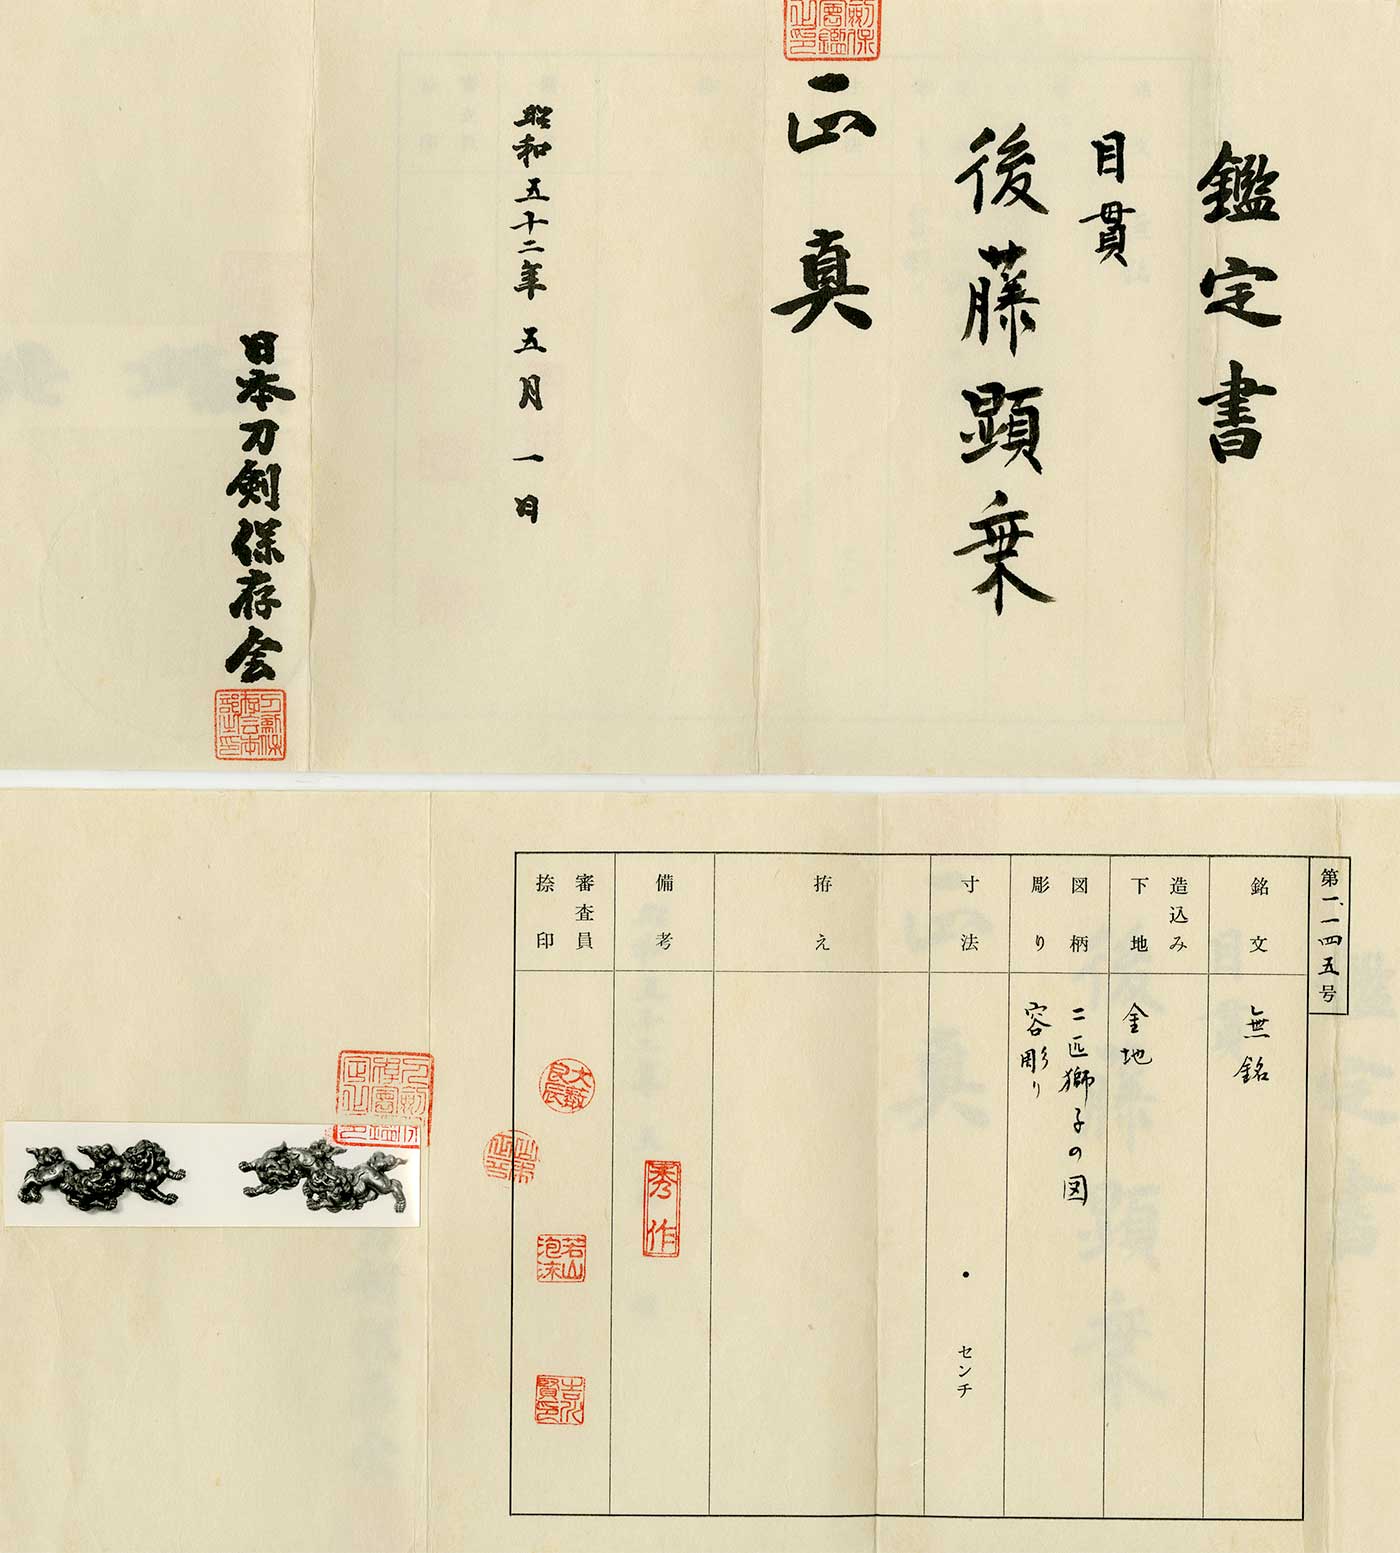 鑑定書
目貫
後藤顕乗
正真
昭和五十二年五月一日
日本刀剣保存会
第一、一四五号
銘文
無銘
造込み
下地
金地
図柄
彫り
二匹獅子の図
容彫り
寸法
・センチ
拵え
備考
秀作
審査員
捺印
大藪
良辰
若山
泡沫
吉川
賢